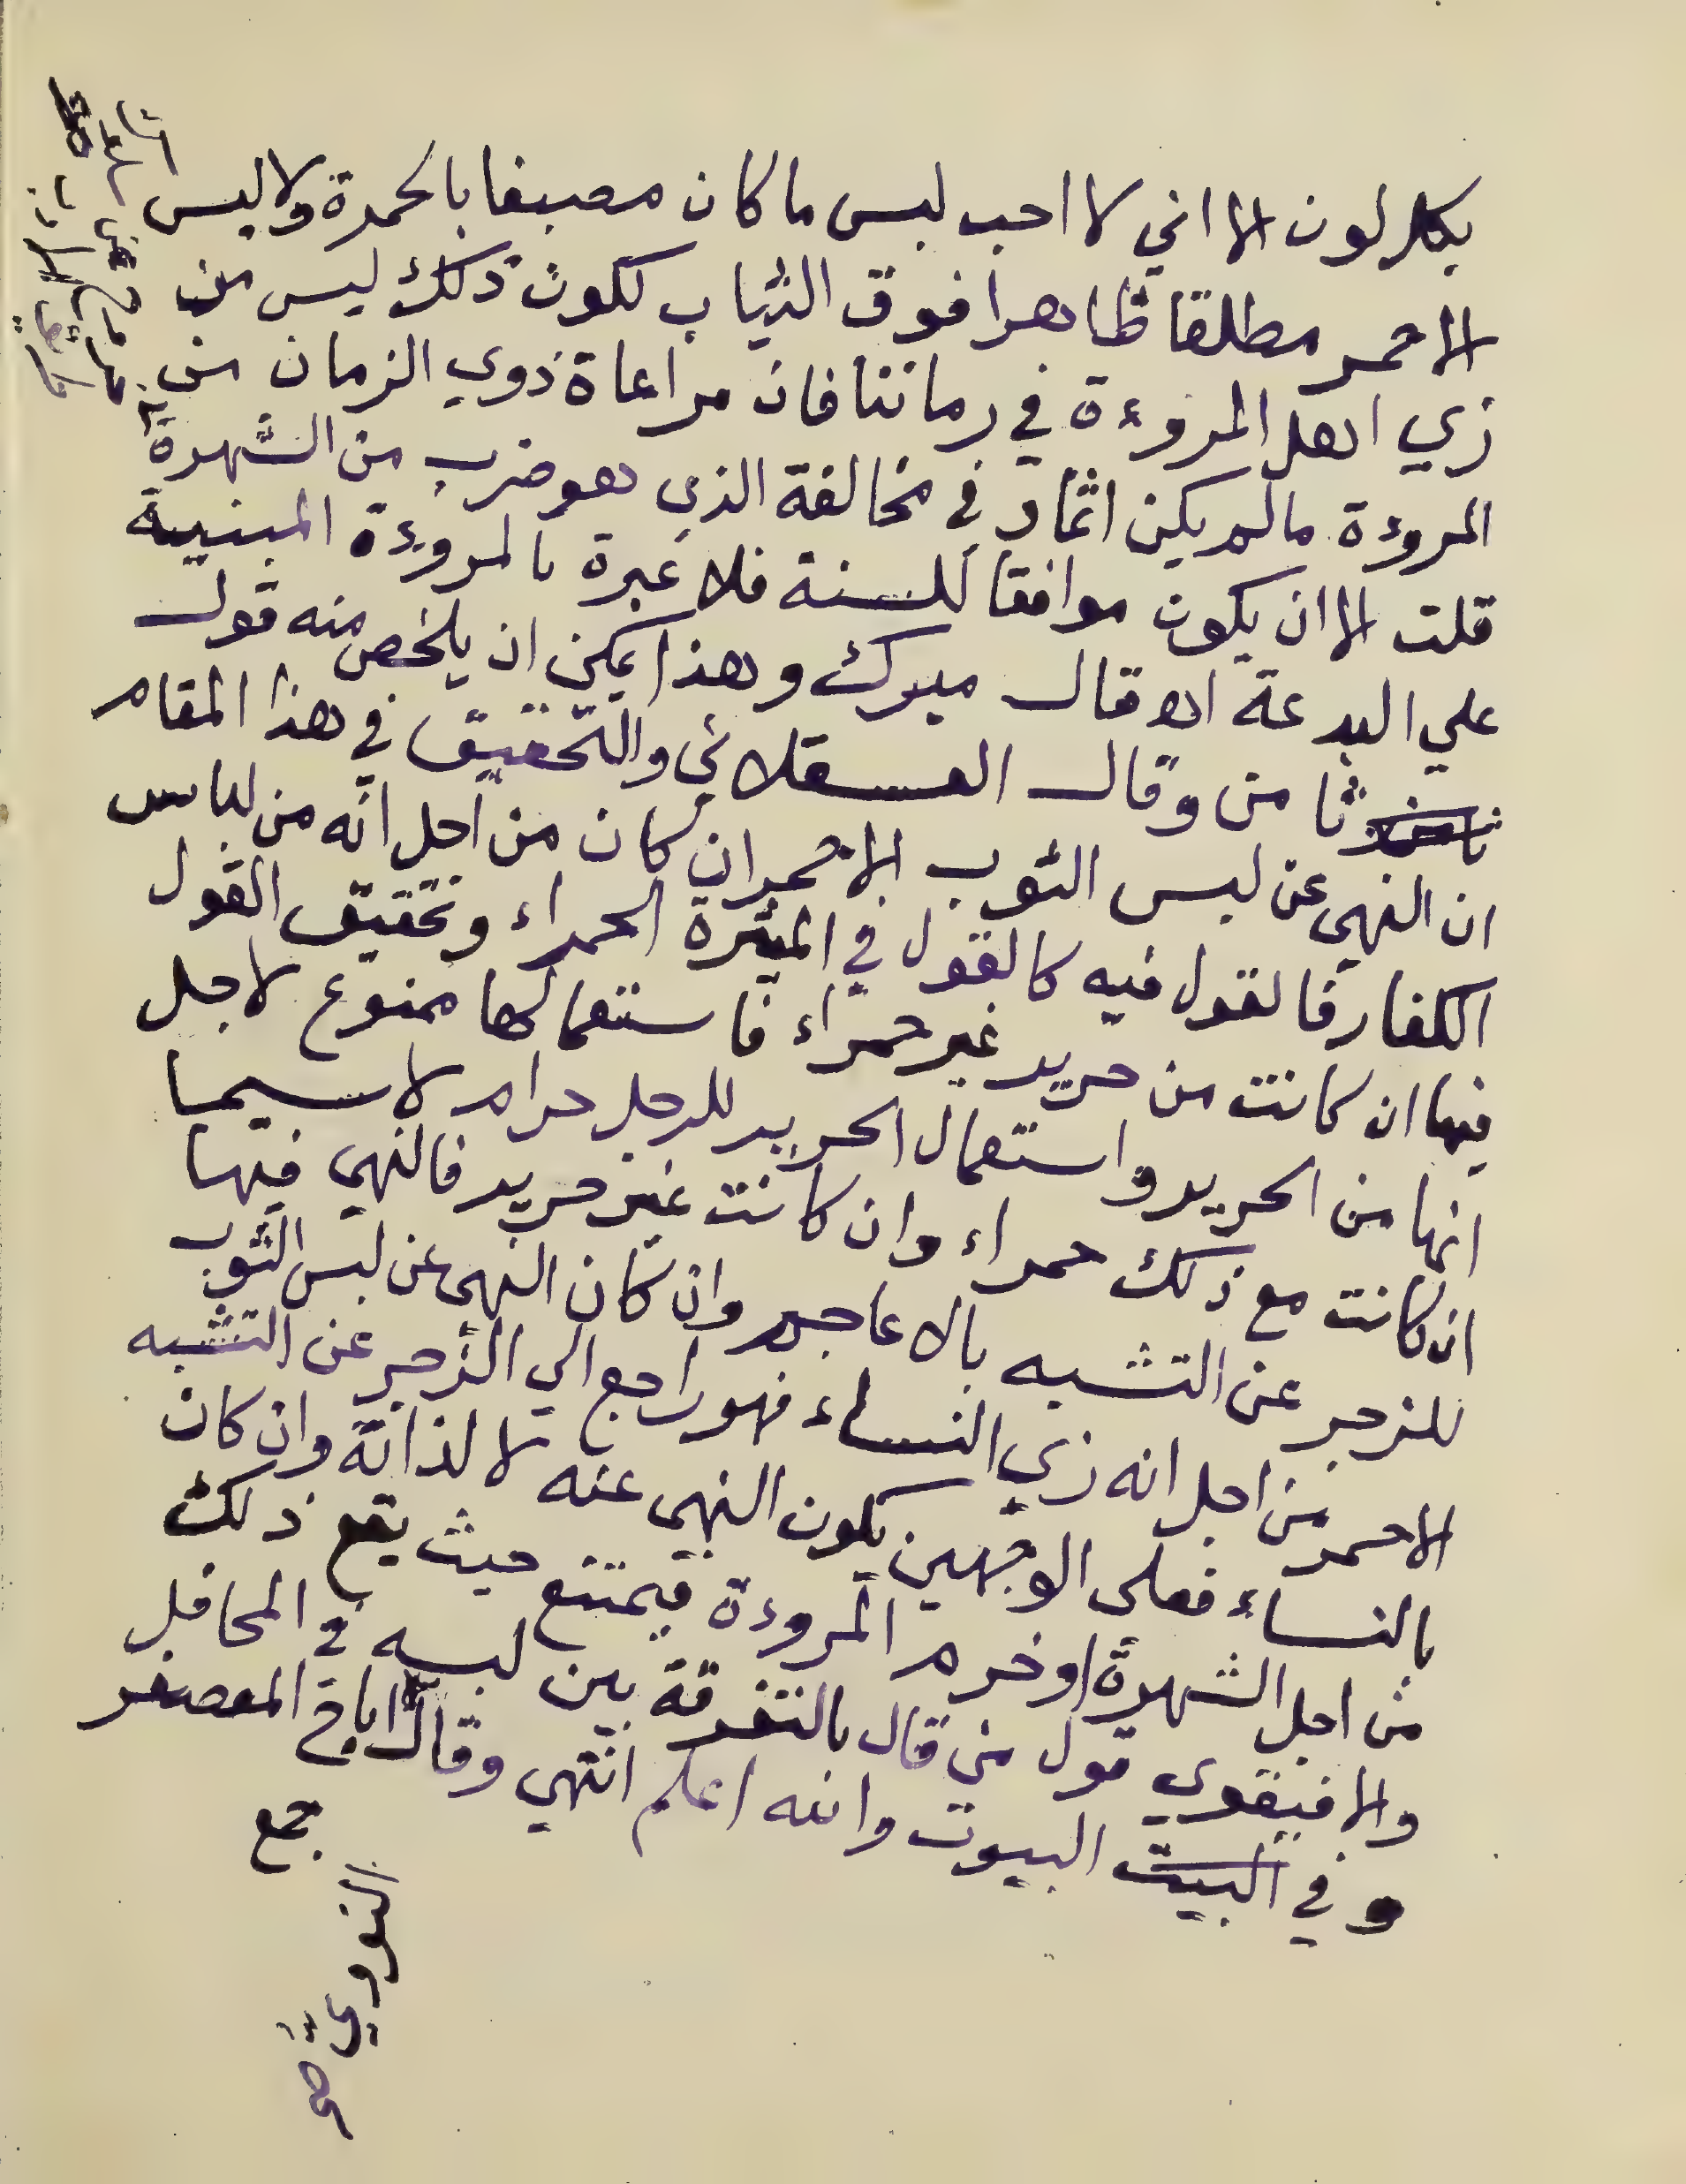 بكل لون الا اني لا احب لبس ما كان مصبغا بالحمرة ولا لبس
الاحمر مطلقا ظاهرا فوق الثياب لكون ذلك ليس من
زي اهل المروءة في رماننا فان مراعاة ذوي الزمان من
المروءة مالم يكن اثما و في مخالفة الذي هو ضرب من الشهرة
قلت الا ان يكون موافقا للسنة فلا غبرة بالمروءة المبنية
علي البدعة اه قال ميرك وهذا يمكن ان يلخص منه قول
ثامن وقال العسقلاني والتحقيق في هذا المقام
ان النهي عن لبس الثوب الاحمر ان كان من اجل انه من لباس
الكفار فالقول فيه كالقول في الميثرة الحمراء وتحقيق القول
فيها ان كانت من حرير غير حمراء فاستعمالها ممنوع لاجل
انها من الحرير واستعمال الحرير للرجل حرام لا سيما
ان كانت مع ذلك حمراء وان كانت غير حرير فالنهي فيها
للزجر عن التشبه بالاعاجم وان كان النهي عن لبس الثوب
الاحمر من اجل انه زي النساء فهو راجع الي الزجر عن التشبه
بالنساء فعلى الوجهين يكون النهي عنه لا لذاته وان كان
من اجل الشهرة او خرم المروءة فيمتنع حيث يقع ذلك
والا فيقوي قول من قال بالتفرقة بين لبسه في المحافل
و في البيت البيوت والله اعلم انتهي وقال اباح المعصفر
جمع
النووي